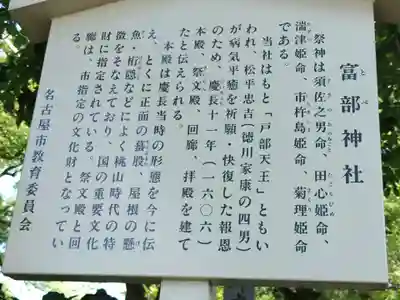 富部神社
とべ
祭神は須佐之男命、田心姫命、
湍津姫命、市杵島姫命、菊理姫命
である。
当社はもと「戸部天王」ともい
われ、松平忠吉(徳川家康の四男)
が病気平癒を祈願・快復した報恩
のため、慶長十一年(一六〇六)
本殿、祭文殿、回廊、拝殿を建て
たと伝えられる。
本殿は慶長当時の形態を今に伝
え、とくに正面の蟇股、屋根の懸
魚・桁隠などによく桃山時代の特
徴をそなえており、国の重要文化
財に指定されている。祭文殿と回
廊は、市指定の文化財となってい
る。
名古屋市教育委員会